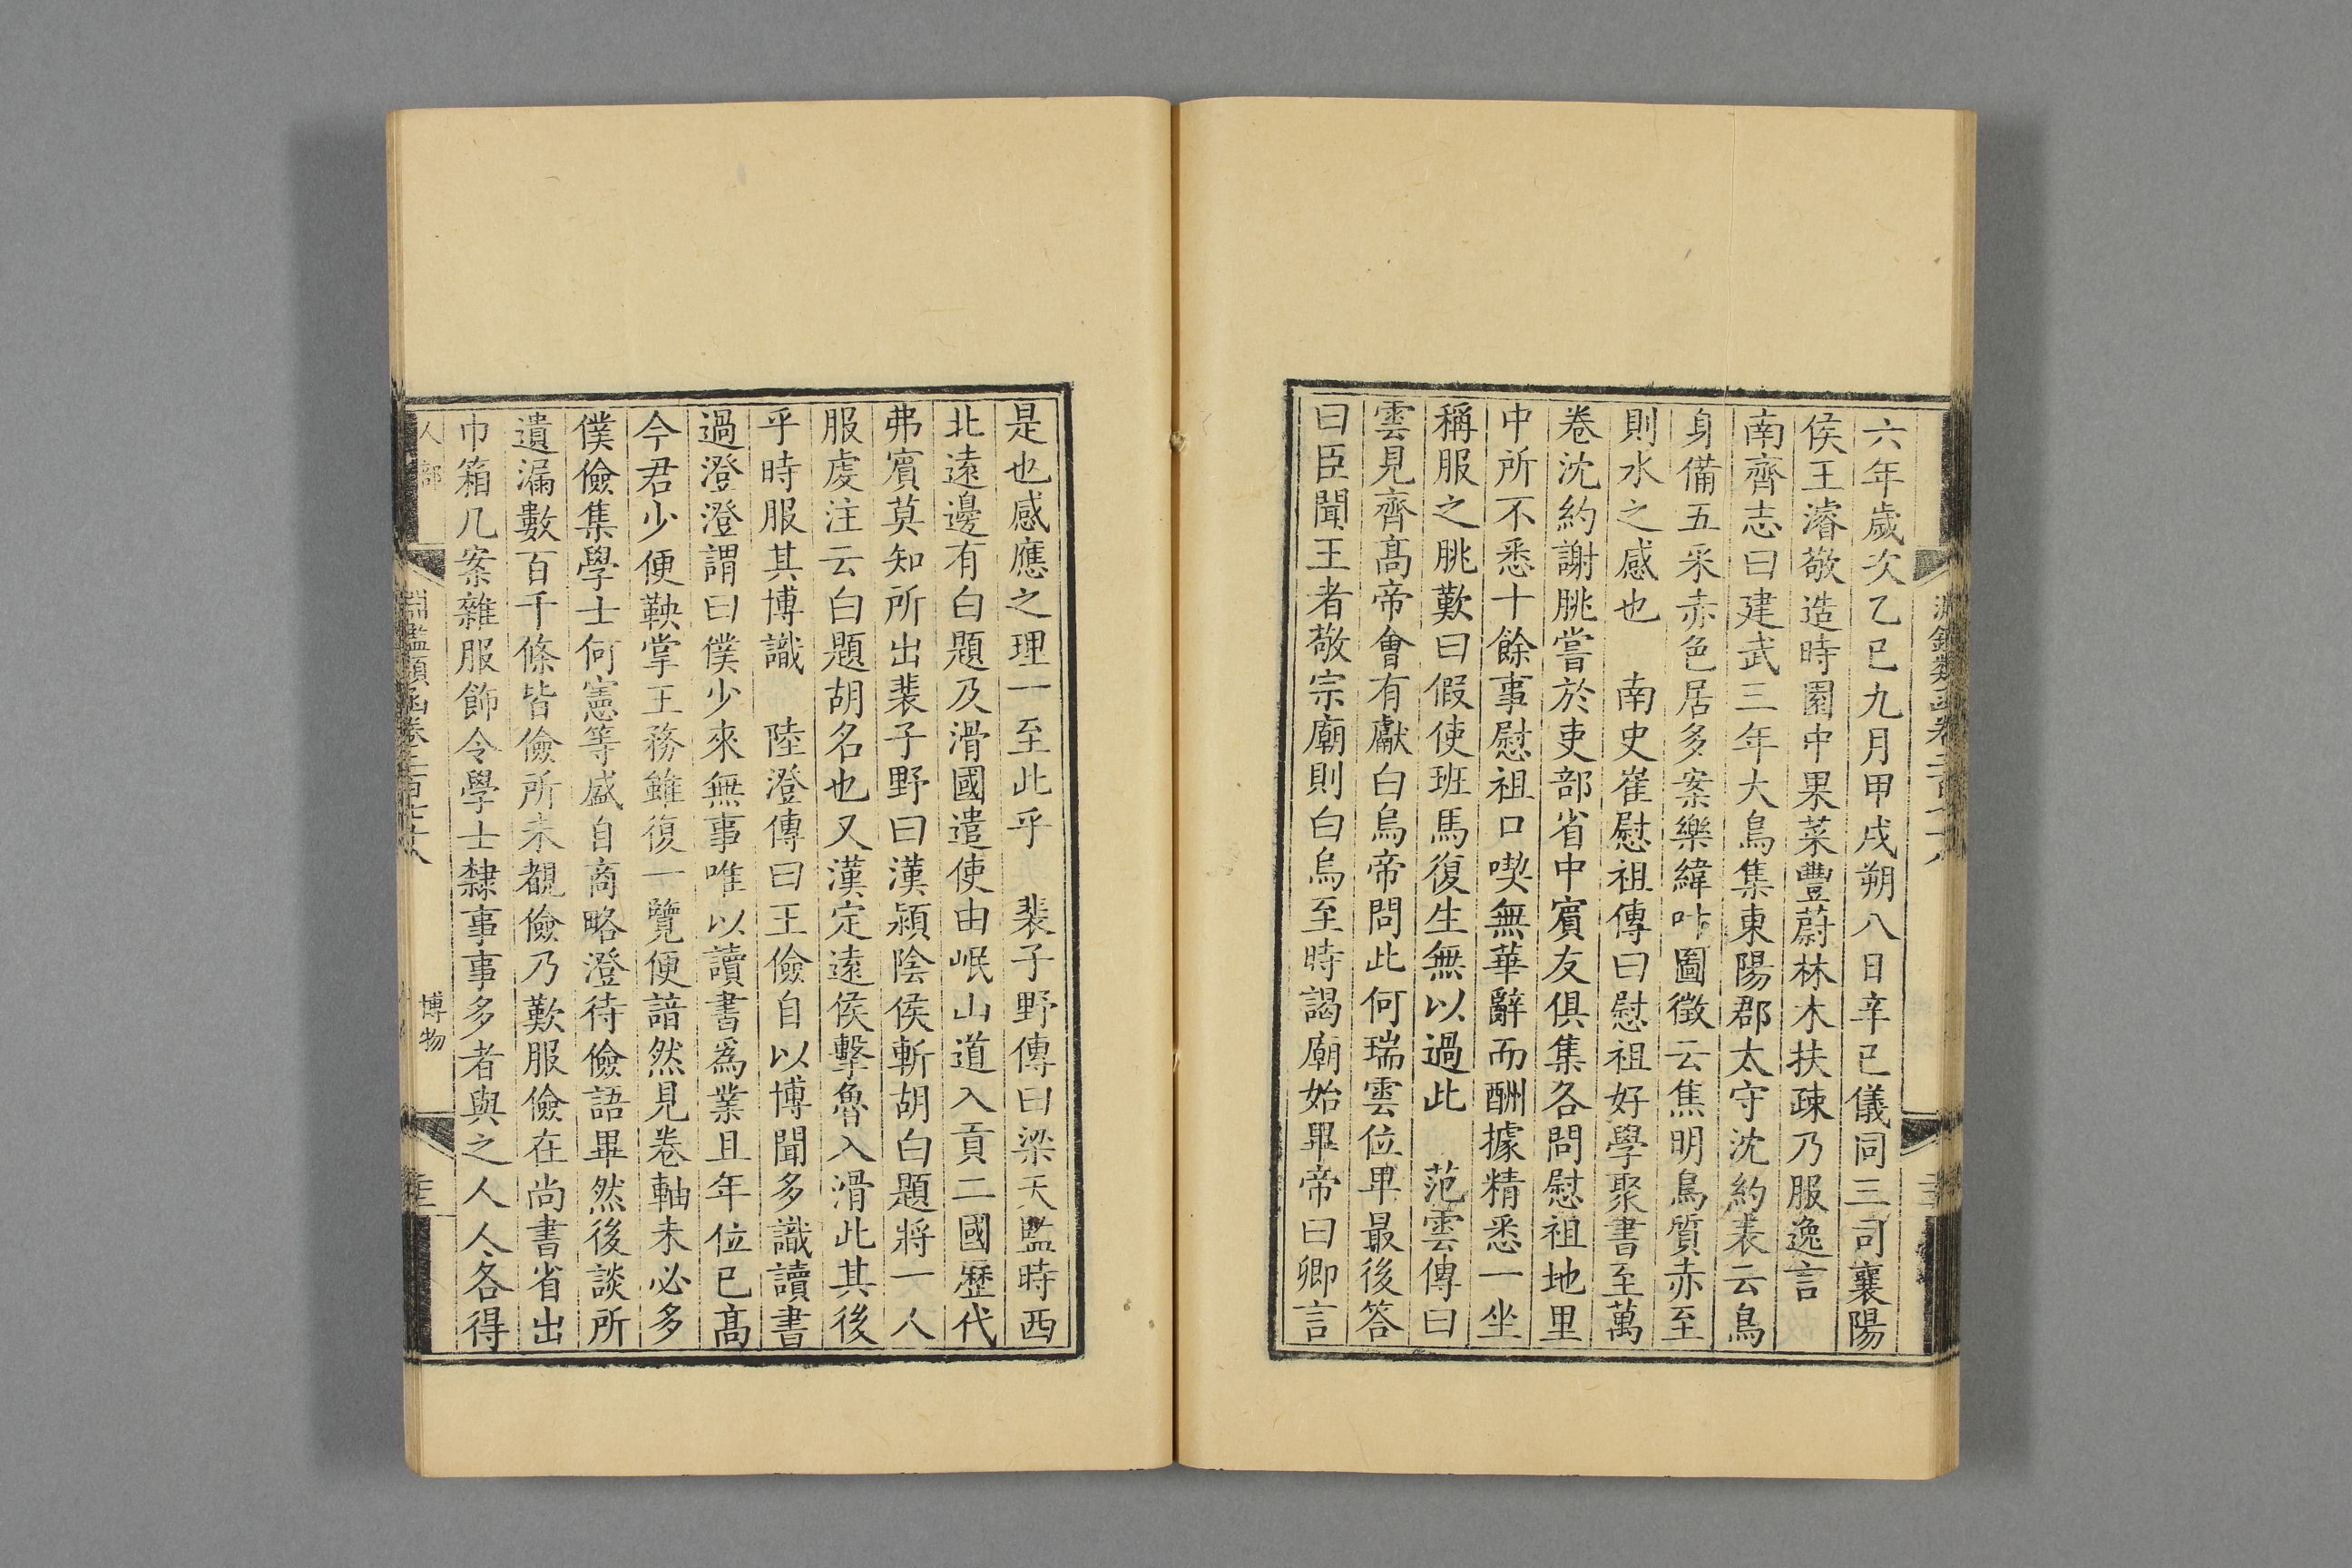 六年歲次乙巳九月甲戌朔八日辛巳儀同三司襄陽
侯王濬敬造時園中果菜豐蔚林木扶疎乃服逸言
南齊志曰建武三年大鳥集東陽郡太守沈約表云鳥
身備五采赤色居多案樂緯叶圖徵云焦明鳥質赤至
則水之感也　南史崔慰祖傳曰慰祖好學聚書至萬
卷沈約謝朓嘗於吏部省中賓友俱集各問慰祖地里
中所不悉十餘事慰祖口喫無華辭而酬據精悉一坐
稱服之朓歎曰假使班馬復生無以過此　范雲傳曰
雲見齊高帝會有獻白烏帝問此何瑞雲位卑最後答
曰臣聞王者敬宗廟則白烏至時謁廟始畢帝曰卿言
是也感應之理一至此乎　裴子野傳曰梁天監時西
北遠邊有白題及滑國遣使由岷山道入貢二國歷代
弗賓莫知所出裴子野曰漢潁陰侯斬胡白題將一人
服虔注云白題胡名也又漢定遠侯擊魯入滑此其後
乎時服其博識　陸澄傳曰王儉自以博聞多識讀書
過澄澄謂曰僕少來無事唯以讀書為業且年位已高
今君少便鞅掌王務雖復一覽便諳然見卷軸未必多
僕儉集學士何憲等盛自商略澄待儉語畢然後談所
遺漏數百千條皆儉所未覩儉乃歎服儉在尚書省出
巾箱几案雜服飾令學士隸事事多者與之人人各得
人部
淵鑑類函卷三百廿八
博物